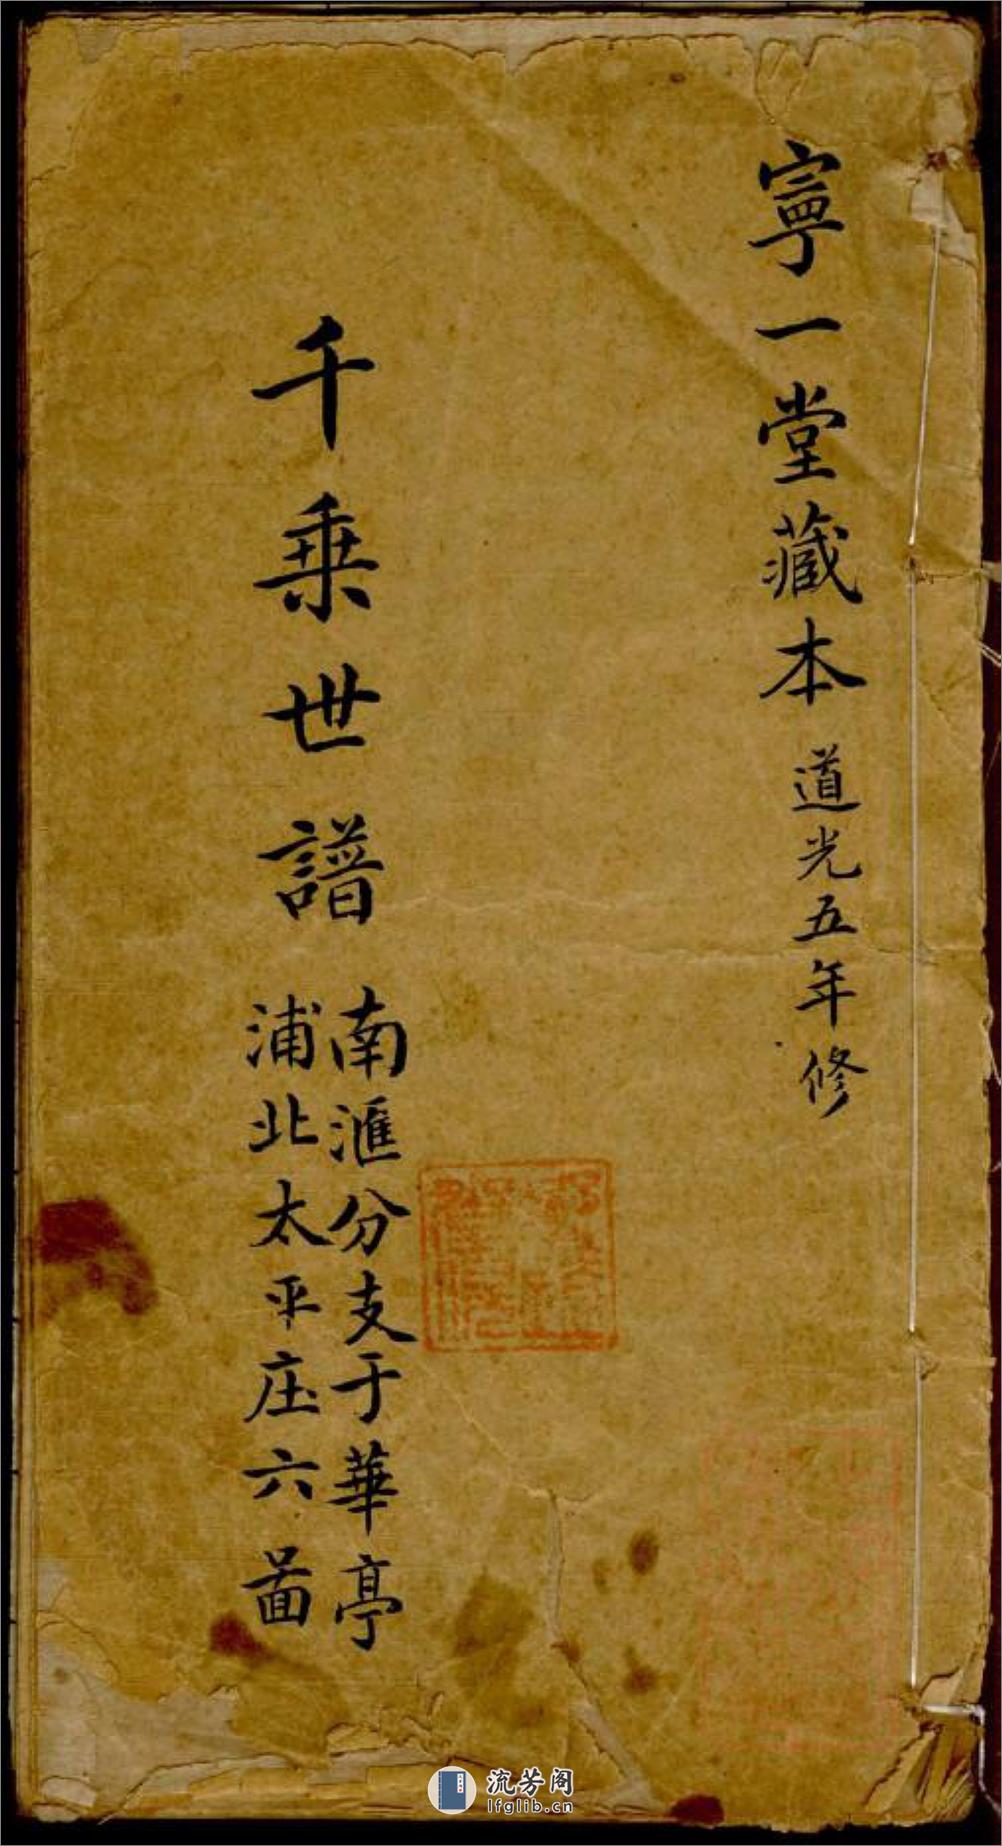 寧一堂藏本 道光五年修
千乗世譜
南滙分支于華亭
浦北太平庄六啚
流芳阁
lfglib.cn